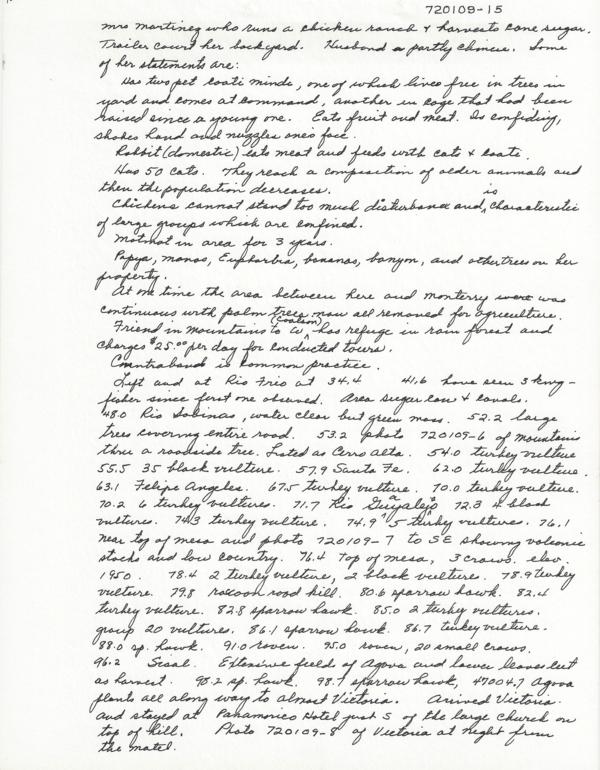 720109-15
mrs martinez who runs a chicken ranch & harvests cane sugar.
Trailer court her backyard. Husband a partly Chinese. Some
of her statements are:
Has two pet coati mindi, one of which lives free in trees in
yard and comes at command, another in cage that had been
raised since a young one. Eats fruit and meat. Is confiding,
shakes hand and nuzzles one's face.
Rabbit (domestic) eats meat and feeds with cats & coati.
Has 50 cats. They reach a composition of older animals and
then the population decreases.
Chickens cannot stand too much disturbance and, is characteristic
of large groups which are confined.
Motmot in area for 3 years.
Papya, manos, Euphorbia, bananas, banyon, and other trees on her
property.
At one time the area between here and monterry was
continuous with palm trees now all removed for agriculture.
Friend in mountains to W, has refuge in rain forest and
charges $25.00 per day for conducted tours.
Contraband is common practice.
Left and at Rio Frio at 34.4 41.6 have seen 3 king-
fisher since first one observed. Area sugar cane & canals.
48.0 Rio Sabinas, water clear but green moss. 52.2 large
trees covering entire road. 53.2 photo 720109-6 of mountains
thru a roadside tree. Listed as Cerro Alta. 54.0 turkey vulture
55.5 35 black vulture. 57.9 Santa Fe. 62.0 turkey vulture.
63.1 Felipe Angeles. 67.5 turkey vulture. 70.0 turkey vulture.
70.2 6 turkey vultures. 71.7 Rio Guayalejo 72.3 4 black
vultures. 74.3 turkey vulture. 74.9 5 turkey vultures. 76.1
near top of mesa and photo 720109-7 to SE showing volcanic
stocks and low country. 76.4 top of mesa, 3 crows. elev.
1950. 78.4 2 turkey vulture, 2 black vultures. 78.9 turkey
vulture. 79.8 racoon road kill. 80.6 sparrow hawk. 82.4
turkey vulture. 82.8 sparrow hawk. 85.0 2 turkey vultures.
group 20 vultures. 86.1 sparrow hawk. 86.7 turkey vulture.
88.0 sp. hawk. 91.0 raven. 95.0 raven, 20 small crows.
96.2 Sisal. Extensive field of Agava and lower leaves cut
as harvest. 98.2 sp. hawk. 98.7 sparrow hawk, 47004.7 Agava
plants all along way to almost Victoria. Arrived Victoria.
and stayed at Panamorico Hotel just S of the large church on
top of hill. Photo 720109-8 of Victoria at night from
the motel.